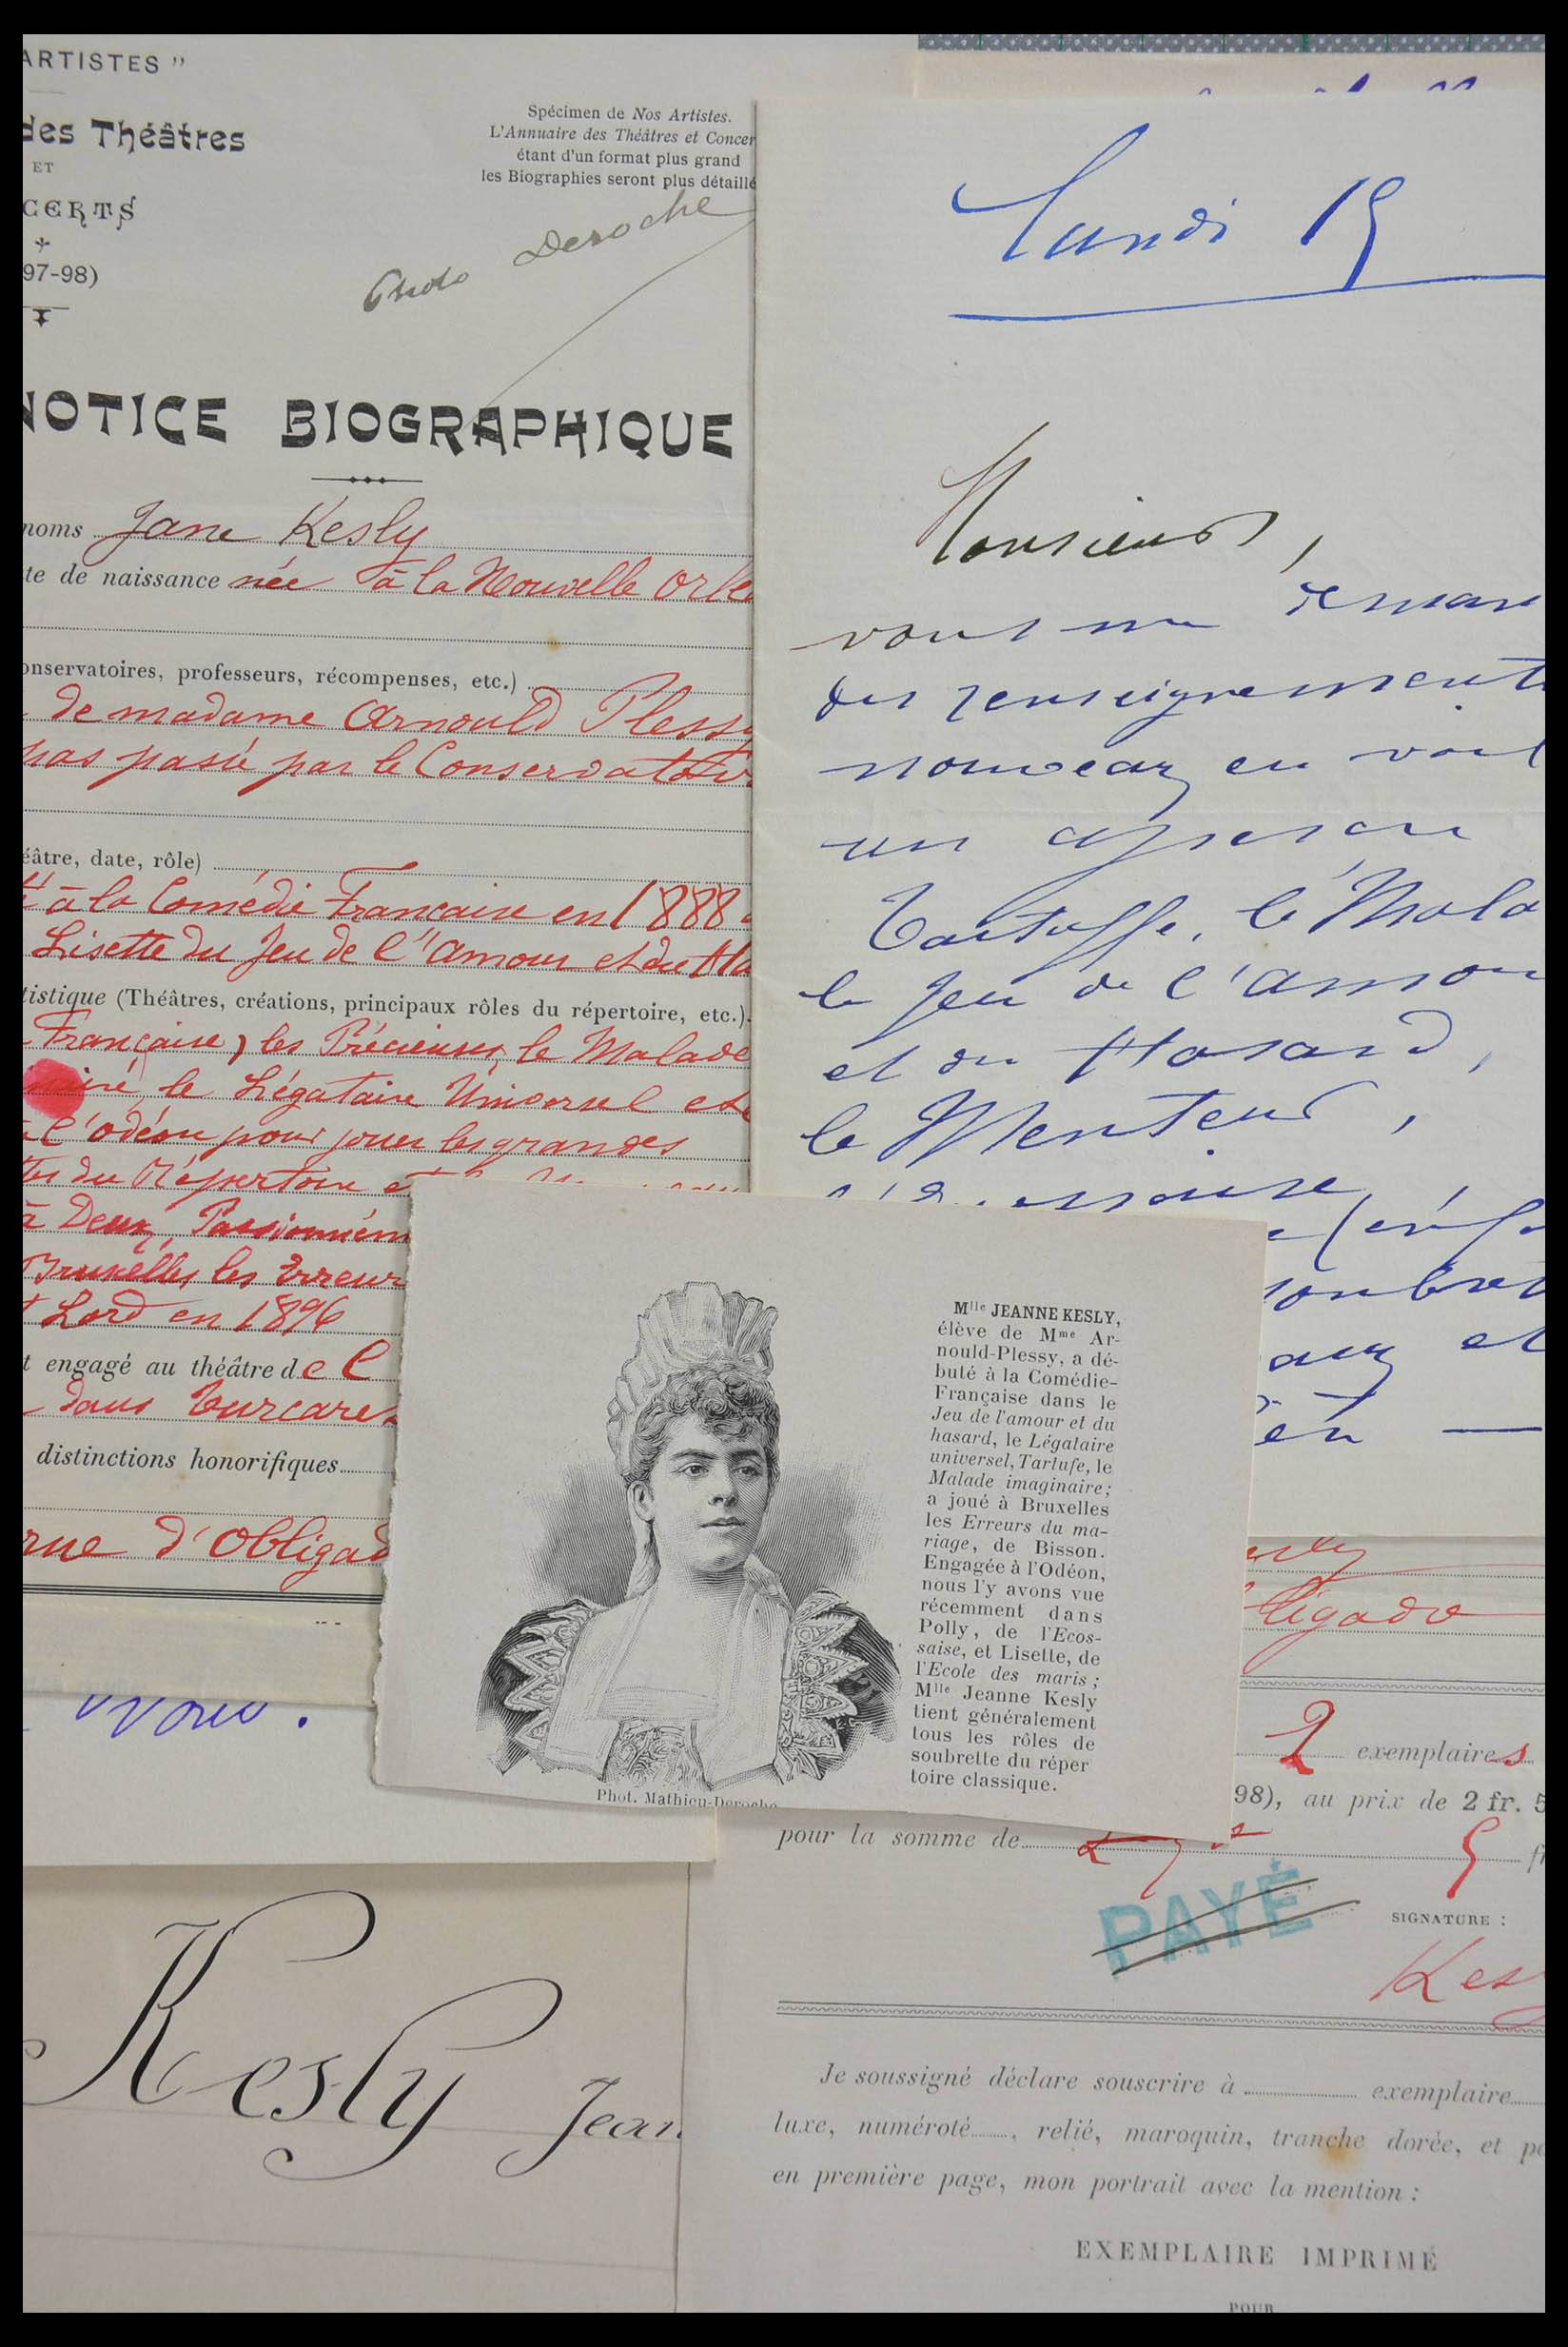 ARTISTES "
des Théâtres
ET
CERTS
97-98)
Spécimen de Nos Artistes.
L'Annuaire des Théâtres et Concer
étant d'un format plus grand
les Biographies seront plus détaillé
Photo Deroche
NOTICE BIOGRAPHIQUE
noms Jane Kesly
te de naissance née à la Nouvelle Orle
onservatoires, professeurs, récompenses, etc.)
de madame Arnould Plessy
pas passé par le Conservatoir
éâtre, date, rôle)
à la Comédie Française en 1888
Lisette du Jeu de l'amour et du Ha
tistique (Théâtres, créations, principaux rôles du répertoire, etc.).
Française, les Précieuses, le Malade
le Légataire Universel etc
l'odéon pour jouer les grandes
du Répertoire
à Deux, Passionném
Bruxelles les Erreur
Lord en 1896
t engagé au théâtre de l
dans Turcaret
distinctions honorifiques
rue d'Obligad
vous.
Kesly Jean
Lundi 15
Monsieur,
vous me deman
des renseignements
nouveaux en voici
un apercu
Tartuffe, le Mala
le Jeu de l'amou
et du Hasard,
le Menteur,
et
Mlle JEANNE KESLY,
élève de Mme Ar-
nould-Plessy, a dé-
buté à la Comédie-
Française dans le
Jeu de l'amour et du
hasard, le Légataire
universel, Tartufe, le
Malade imaginaire;
a joué à Bruxelles
les Erreurs du ma-
riage, de Bisson.
Engagée à l'Odéon,
nous l'y avons vue
récemment dans
Polly, de l'Ecos-
saise, et Lisette, de
l'Ecole des maris;
Mlle Jeanne Kesly
tient généralement
tous les rôles de
soubrette du réper
toire classique.
Phot. Mathieu-Deroche
esly
ligado
2 exemplaires
98), au prix de 2 fr. 5
pour la somme de 5 fr
PAYÉ
SIGNATURE :
Kes
Je soussigné déclare souscrire à exemplaire
luxe, numéroté, relié, maroquin, tranche dorée, et po
en première page, mon portrait avec la mention :
EXEMPLAIRE IMPRIMÉ
POUR